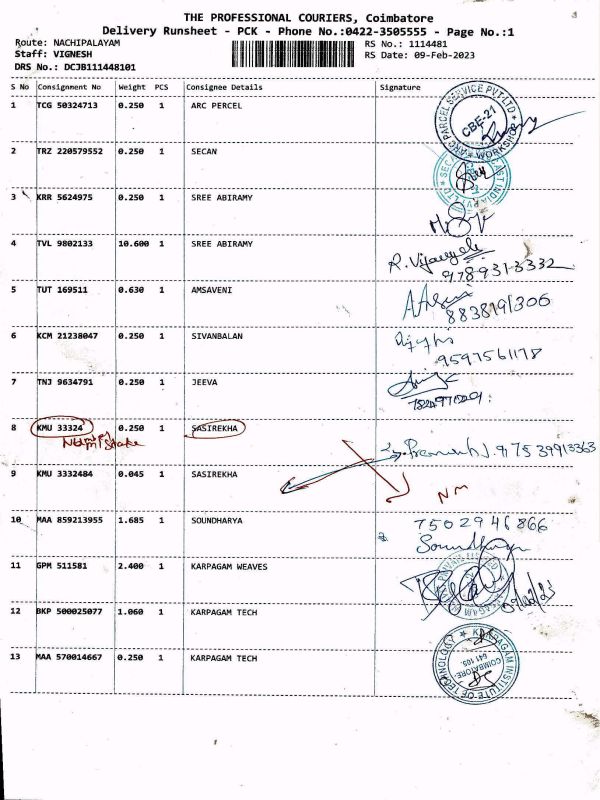 THE PROFESSIONAL COURIERS, Coimbatore
Delivery Runsheet - PCK - Phone No.:0422-3505555 - Page No.:1
Route: NACHIPALAYAM
RS No.: 1114481
Staff: VIGNESH
RS Date: 09-Feb-2023
DRS No.: DCJB111448101
S No Consignment No Weight PCS Consignee Details Signature
1 TCG 50324713 0.250 1 ARC PERCEL
ARC PARCEL SERVICE PVT LTD
CBE-21
WORKSHOP
2 TRZ 220579552 0.250 1 SECAN
3 KRR 5624975 0.250 1 SREE ABIRAMY
4 TVL 9802133 10.600 1 SREE ABIRAMY
R. Vijayayale
9789313332
5 TUT 169511 0.630 1 AMSAVENI
8838191306
6 KCM 21238047 0.250 1 SIVANBALAN
9597561178
7 TNJ 9634791 0.250 1 JEEVA
8 KMU 33324 0.250 1 SASIREKHA
Number
mistake
9 KMU 3332484 0.045 1 SASIREKHA
NM
10 MAA 859213955 1.685 1 SOUNDHARYA
7502946866
Soundharya
11 GPM 511581 2.400 1 KARPAGAM WEAVES
09/02/23
12 BKP 500025077 1.060 1 KARPAGAM TECH
13 MAA 570014667 0.250 1 KARPAGAM TECH
KARPAGAM INSTITUTE OF TECHNOLOGY
COIMBATORE-
641 105.